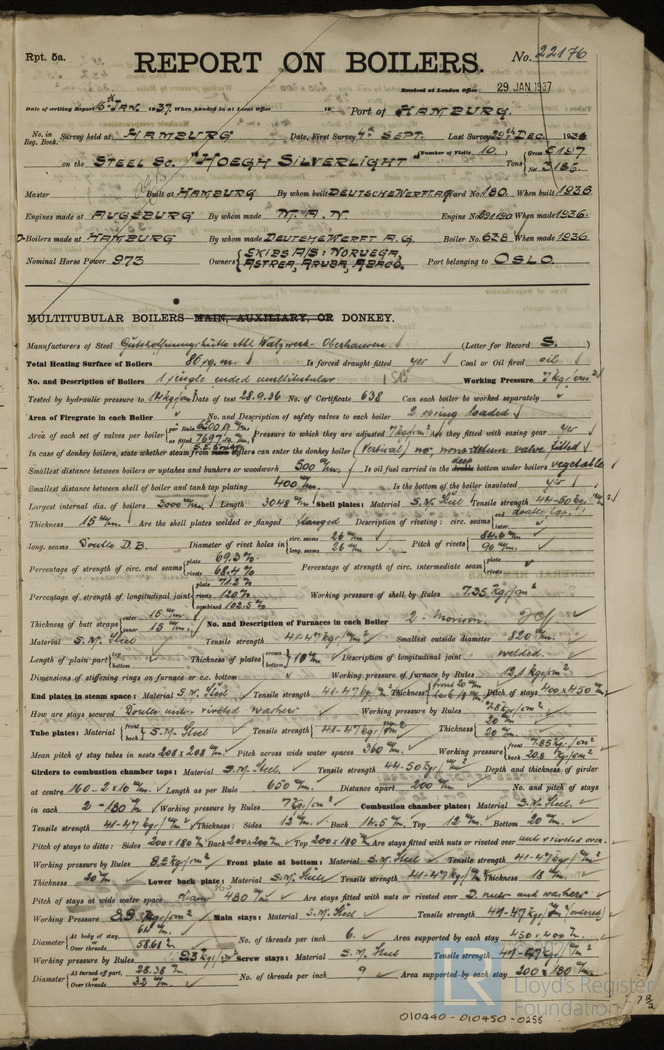 Rpt. 5a.
REPORT ON BOILERS.
No. 22176
Received at London Office 29 JAN 1937
Date of writing Report 15th JAN. 1937. When handed in at Local Office 19 Port of HAMBURG.
No. in Reg. Book. Survey held at HAMBURG Date, First Survey 4th SEPT. Last Survey 29th DEC. 1936
on the STEEL SC. "HOEGH SILVERLIGHT" (Number of Visits 10) Tons { Gross 5197 Net 3186.
Master Built at HAMBURG By whom built DEUTSCHE WERFT A.G. Yard No. 180. When built 1936.
Engines made at AUGSBURG By whom made M.A.N. Engine No. When made 1936.
Boilers made at HAMBURG By whom made DEUTSCHE WERFT A.G. Boiler No. 638 When made 1936
Nominal Horse Power 973 Owners { SKIBS A/S: NORUEGA, ASTREA, ARUBA, ABACO. Port belonging to OSLO.
MULTITUBULAR BOILERS MAIN, AUXILIARY, OR DONKEY.
Manufacturers of Steel Gutehoffnungshütte Abt. Walzwerk - Oberhausen. (Letter for Record S.)
Total Heating Surface of Boilers 86 sq.m. Is forced draught fitted yes Coal or Oil fired oil
No. and Description of Boilers 1 single ended multitubular Working Pressure 7 kg/cm²
Tested by hydraulic pressure to 14 kg/cm² Date of test 28.9.36 No. of Certificate 638 Can each boiler be worked separately
Area of Firegrate in each Boiler No. and Description of safety valves to each boiler 2 spring loaded
Area of each set of valves per boiler { per Rule as fitted 7697 Pressure to which they are adjusted 7 kg/cm² Are they fitted with easing gear yes
In case of donkey boilers, state whether steam from main boilers can enter the donkey boiler no, nonreturn valve fitted
Smallest distance between boilers or uptakes and bunkers or woodwork 500 m/m. Is oil fuel carried in the double bottom under boilers vegetable
Smallest distance between shell of boiler and tank top plating 400 m/m. Is the bottom of the boiler insulated yes
Largest internal dia. of boilers 3000 m/m. Length 3048 m/m. Shell plates: Material S.M. Steel Tensile strength 44-50 kg/m/m²
Thickness 15 m/m. Are the shell plates welded or flanged flanged Description of riveting: circ. seams { end double lap. inter
long. seams Double D.B. Diameter of rivet holes in { circ. seams 26 m/m long. seams 26 m/m Pitch of rivets { 84.6 m/m 90 m/m
Percentage of strength of circ. end seams { plate 69.3 % rivets 68.4 % Percentage of strength of circ. intermediate seam { plate rivets
Percentage of strength of longitudinal joint { plate 71.3 % rivets 120 % combined 102.5 % Working pressure of shell by Rules 7.35 kg/cm²
Thickness of butt straps { outer 15 m/m inner 15 m/m. No. and Description of Furnaces in each Boiler 2 - Morison.
Material S.M. Steel Tensile strength 41-47 kg/m/m² Smallest outside diameter 820 m/m.
Length of plain part { top bottom Thickness of plates { crown bottom } 10 m/m Description of longitudinal joint welded.
Dimensions of stiffening rings on furnace or c.c. bottom Working pressure of furnace by Rules 12.1 kg/cm²
End plates in steam space: Material S.M. Steel Tensile strength 41-47 kg/m/m² Thickness { front 20 m/m back 18 m/m Pitch of stays 400 x 450 m/m
How are stays secured Double nuts riveted washers Working pressure by Rules 7.8 kg/cm²
Tube plates: Material { front back S.M. Steel Tensile strength { 41-47 kg/m/m² Thickness { 20 m/m 20 m/m
Mean pitch of stay tubes in nests 208 x 208 m/m. Pitch across wide water spaces 360 m/m. Working pressure { front 7.85 kg/cm² back 20.8 kg/cm²
Girders to combustion chamber tops: Material S.M. Steel. Tensile strength 44-50 kg/m/m² Depth and thickness of girder
at centre 160 - 2 x 10 m/m. Length as per Rule 650 m/m. Distance apart 200 m/m. No. and pitch of stays
in each 2 - 180 m/m Working pressure by Rules 7 kg/cm² Combustion chamber plates: Material S.M. Steel.
Tensile strength 41-47 kg/m/m² Thickness: Sides 12 m/m. Back 14.5 m/m. Top 12 m/m Bottom 20 m/m.
Pitch of stays to ditto: Sides 200 x 180 Back 200 x 200 Top 200 x 180 Are stays fitted with nuts or riveted over nuts & riveted over.
Working pressure by Rules 8.5 kg/cm² Front plate at bottom: Material S.M. Steel Tensile strength 41-47 kg/m/m²
Thickness 20 m/m Lower back plate: Material S.M. Steel Tensile strength 41-47 kg/m/m² Thickness 18 m/m.
Pitch of stays at wide water space 480 m/m Are stays fitted with nuts or riveted over D. nuts and washers
Working Pressure kg/cm² Main stays: Material S.M. Steel Tensile strength 41-47 kg/m/m² (ordered)
Diameter { At body of stay, or Over threads 58.61 No. of threads per inch 6. Area supported by each stay 450 x 400 m/m.
Working pressure by Rules kg/cm² Screw stays: Material S.M. Steel Tensile strength 41-47 kg/m/m²
Diameter { At turned off part, 28.38 m/m. or Over threads 32 m/m. No. of threads per inch 9 Area supported by each stay 200 x 180 m/m.
Lloyd's Register
Foundation
010440 - 010450 - 0255